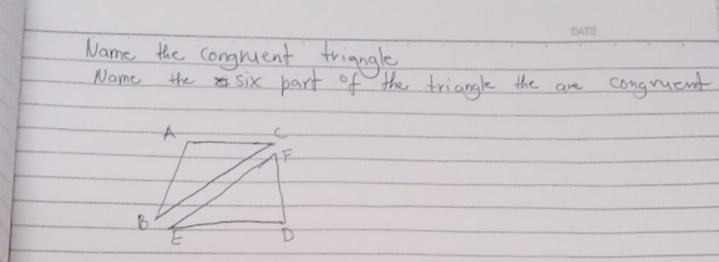 DATE
Name the congruent triangle
Name the six part of the triangle the are congruent
A C
F
B
E D